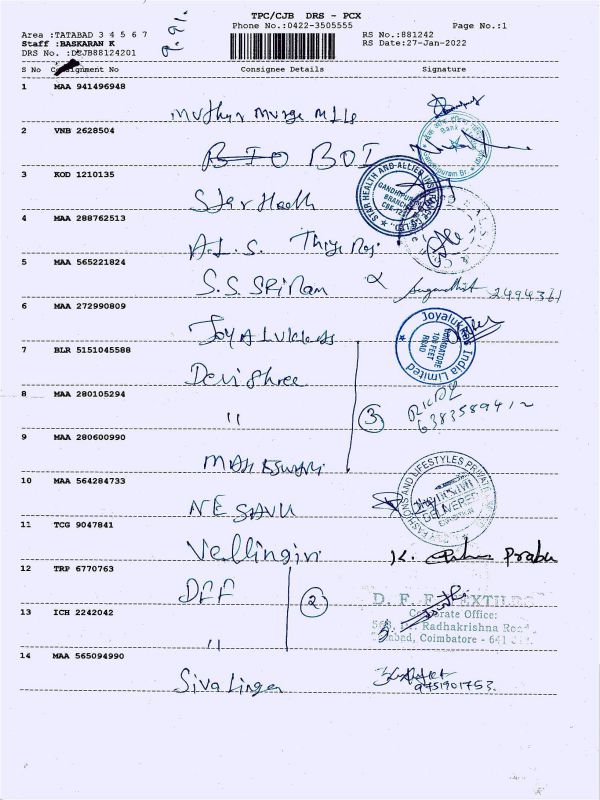 TPC/CJB DRS - PCX
Phone No.:0422-3505555
Page No.:1
Area :TATABAD 3 4 5 6 7
RS No.:881242
Staff :BASKARAN K
RS Date:27-Jan-2022
DRS No. :DCJB88124201
S No Consignment No Consignee Details Signature
1 MAA 941496948
2 VNB 2628504
BIO BOI
3 KOD 1210135
Star Health
STAR HEALTH AND ALLIED INSURANCE CO. LTD.
GANDHIPURAM
BRANCH
4 MAA 288762513
A.L.S.
5 MAA 565221824
S.S. SRiRam
2494361
6 MAA 272990809
Joyalukkas
Joyalukkas India Limited
COIMBATORE
100 FEET
ROAD
7 BLR 5151045588
Devi Shree
8 MAA 280105294
"
3
6383589412
9 MAA 280600990
MAHESWARI
10 MAA 564284733
NESAVU
FASHIONS AND LIFESTYLES PRIVATE
DELIVERED
11 TCG 9047841
Vellingiri
K. Prabu
12 TRP 6770763
DFF
2
D. F. F. TEXTILES
Corporate Office:
Radhakrishna Road
Coimbatore - 641
13 ICH 2242042
"
14 MAA 565094990
Siva Lingam
9751901753